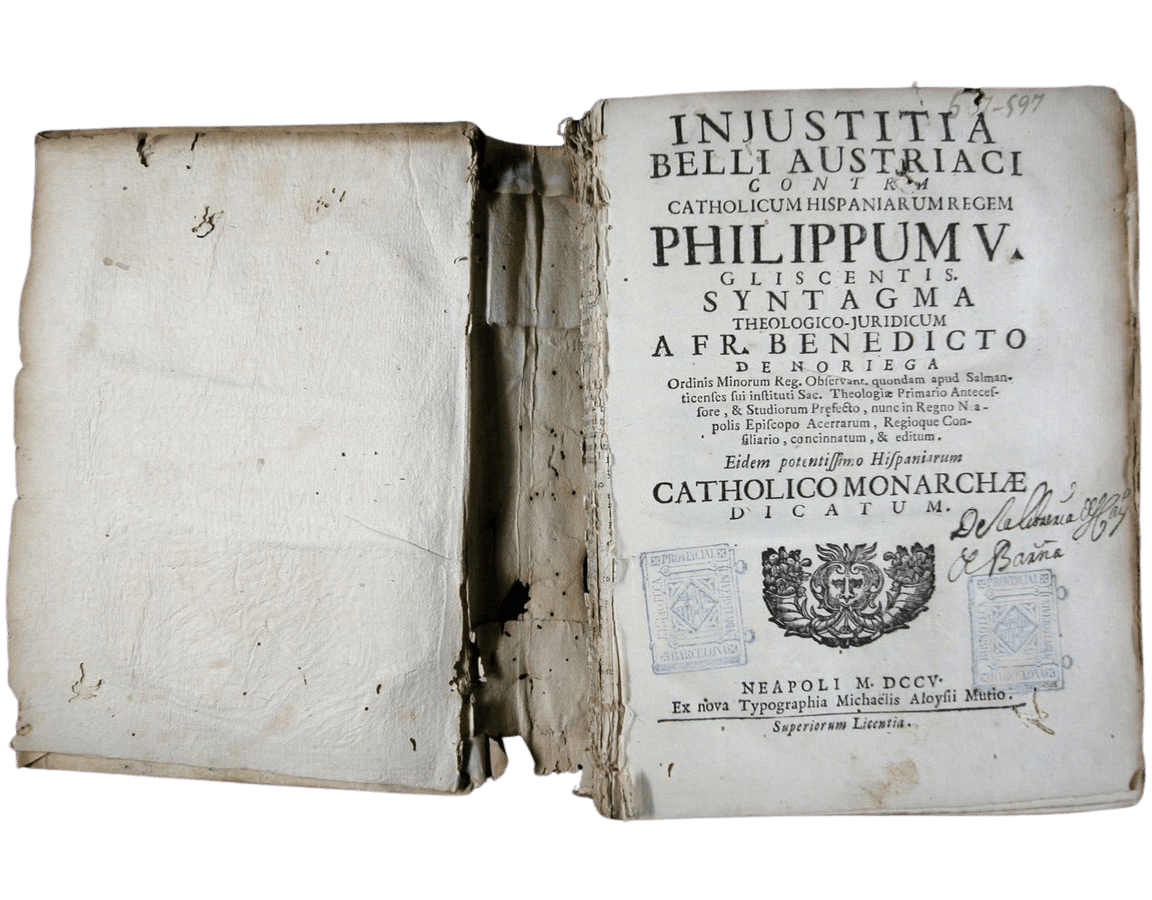 INJUSTITIA
BELLI AUSTRIACI
CONTRA
CATHOLICUM HISPANIARUM REGEM
PHILIPPUM V.
GLISCENTIS.
SYNTAGMA
THEOLOGICO-JURIDICUM
A FR. BENEDICTO
DE NORIEGA
Ordinis Minorum Reg. Obſervant. quondam apud Salman-
ticenſes ſui inſtituti Sac. Theologiæ Primario Anteceſ-
ſore, & Studiorum Pręfecto, nunc in Regno Nea-
polis Epiſcopo Acerrarum, Regioque Con-
ſiliario, concinnatum, & editum.
Eidem potentiſſimo Hiſpaniarum
CATHOLICO MONARCHÆ
DICATUM.
De la libreria
de Barña
PROVINCIAL
BIBLIOTECA
BARCELONA
PROVINCIAL
BIBLIOTECA
BARCELONA
NEAPOLI M. DCCV.
Ex nova Typographia Michaëlis Aloyſii Mutio.
Superiorum Licentia.